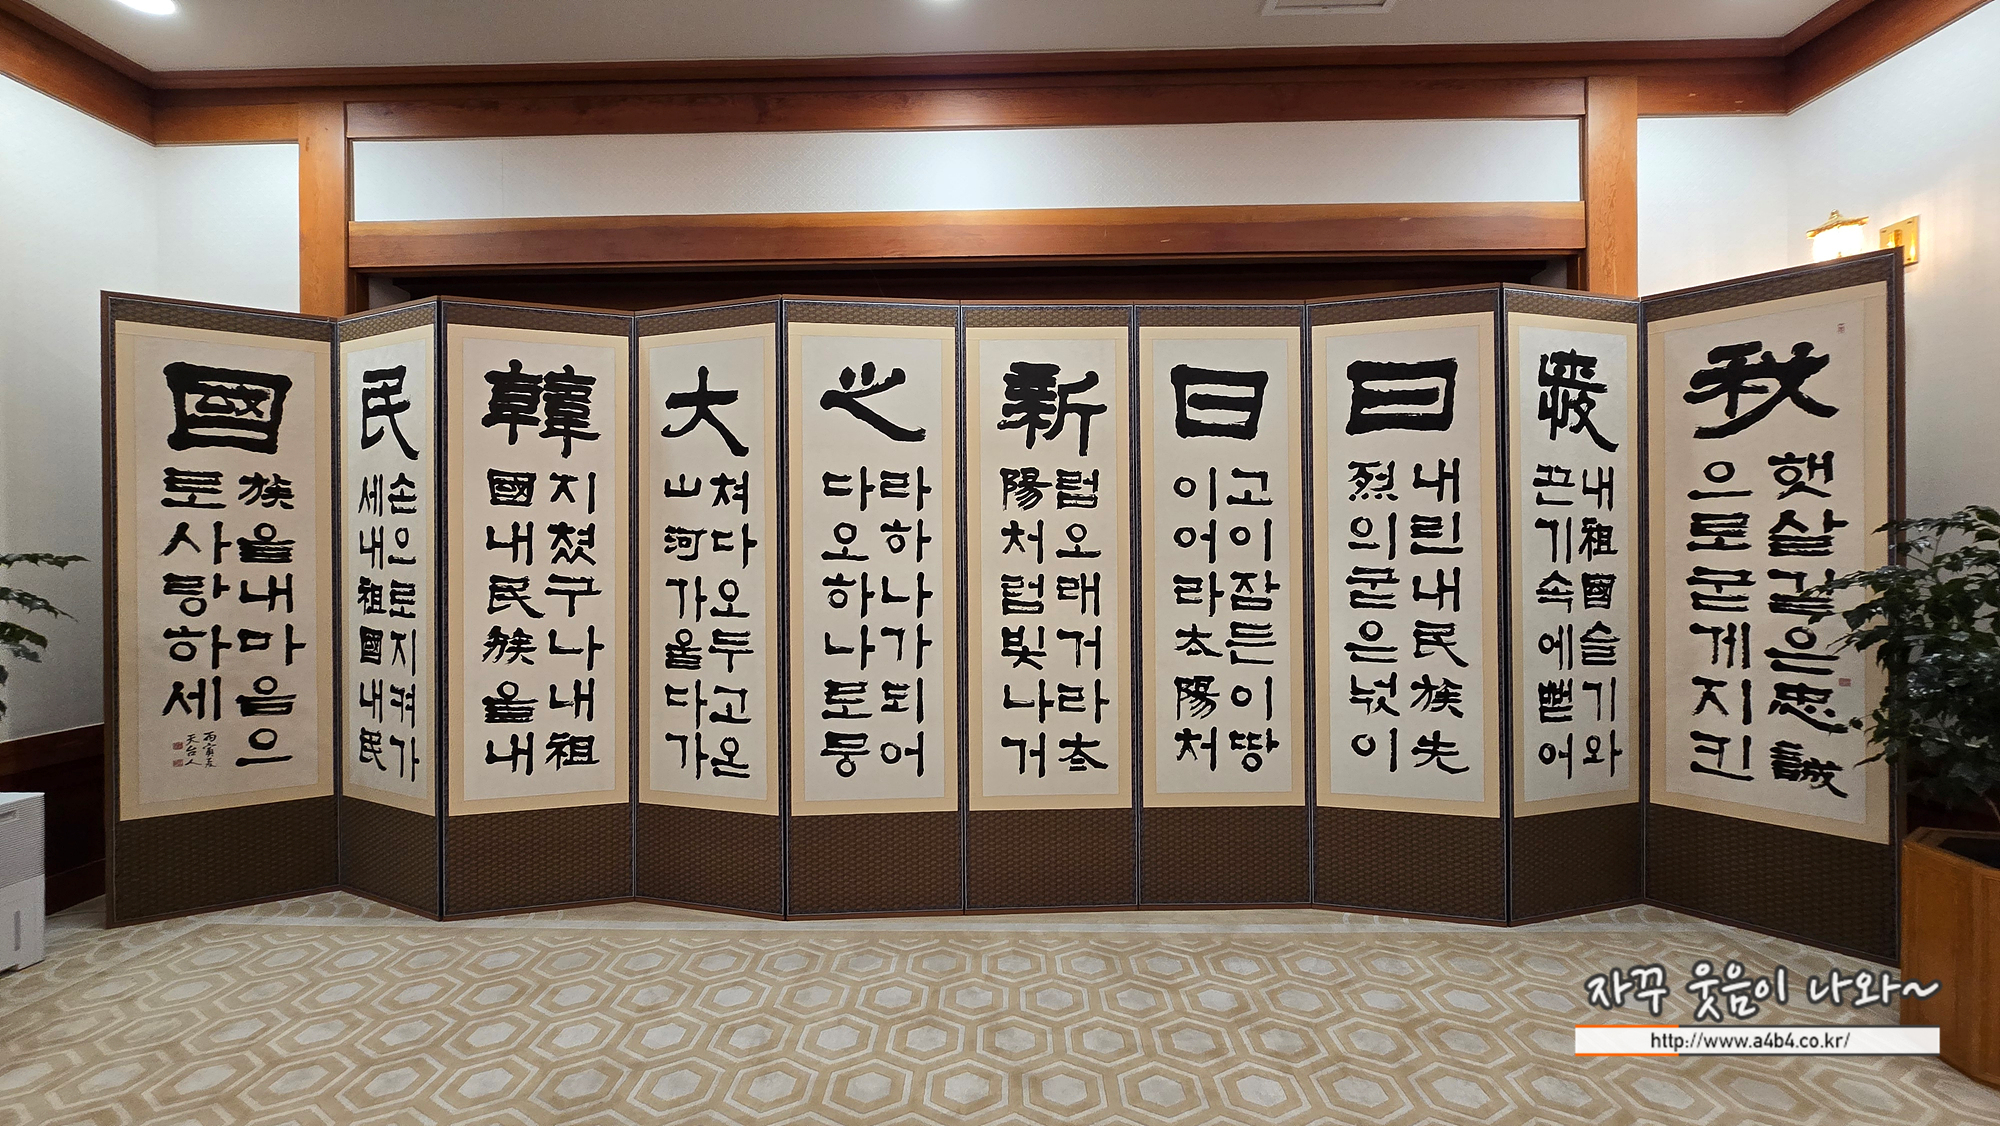 秋
햇살같은忠誠
으로굳게지킨
내祖國슬기와
끈기속에뻗어
日
내린내民族先
烈의굳은넋이
日
고이잠든이땅
이어라太陽처
新
럼오래거라太
陽처럼빛나거
心
라하나가되어
다오하나로뭉
大
쳐다오두고온
山河가울다가
韓
지쳤구나내祖
國내民族을내
民
손으로지켜가
세내祖國내民
國
族을내마음으
로사랑하세
丙寅
天台人
자꾸 웃음이 나와~
http://www.a4b4.co.kr/